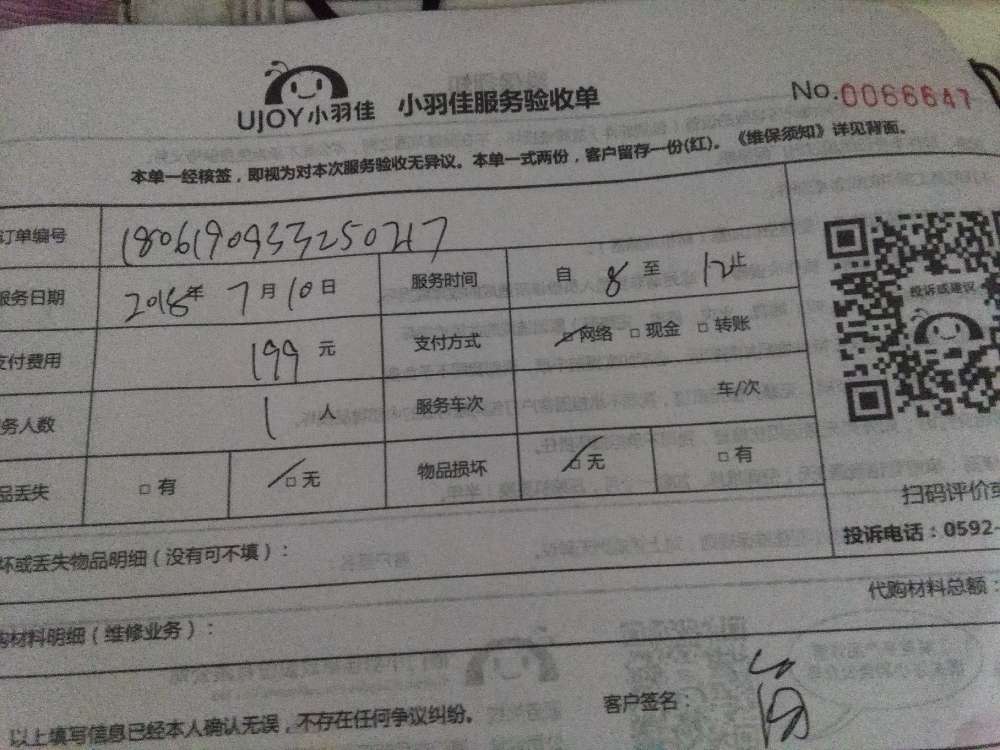 UJOY小羽佳 小羽佳服务验收单 No.0066647
本单一经核签，即视为对本次服务验收无异议。本单一式两份，客户留存一份(红)。《维保须知》详见背面。
订单编号 1806190933250217
服务日期 2018年 7月10日 服务时间 自 8 至 12止
支付费用 199 元 支付方式 网络 □ 现金 □ 转账
务人数 1 人 服务车次 车/次
品丢失 □ 有 □ 无 物品损坏 □ 无 □ 有
投诉或建议
扫码评价或
投诉电话：0592-
坏或丢失物品明细（没有可不填）：
代购材料总额：
购材料明细（维修业务）：
以上填写信息已经本人确认无误，不存在任何争议纠纷。
客户签名：